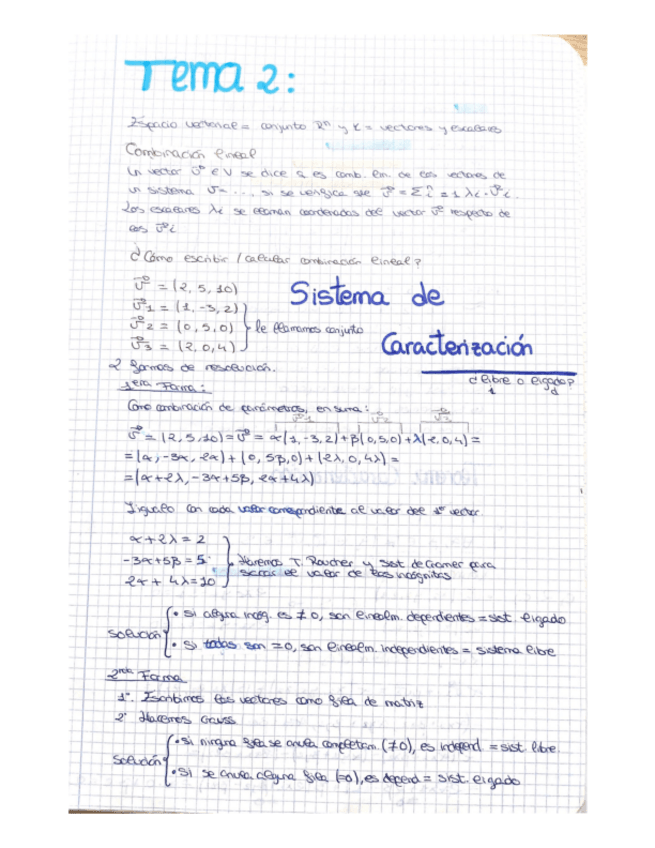 Tema 2:
Espacio vectorial = conjunto Rⁿ y K = vectores y escalares
Combinación lineal
Un vector v⃗ ∈ V se dice q es comb. lin. de los vectores de
un sistema V= ..., si se verifica que v⃗ = Σ i = 1 λi · v⃗i.
Los escalares λi se llaman coordenadas del vector v⃗ respecto de
los v⃗i
¿Cómo escribir / calcular combinación lineal?
v⃗ = (2, 5, 10)
Sistema de
v⃗1 = (1, -3, 2)
v⃗2 = (0, 5, 0) } le llamamos conjunto
Caracterización
v⃗3 = (2, 0, 4)
2 formas de resolución.
¿libre o ligado?
1era Forma:
Como combinación de parámetros, en suma:
v⃗ = (2, 5, 10) = v⃗ = α(1, -3, 2) + β(0, 5, 0) + λ(2, 0, 4) =
= (α, -3α, 2α) + (0, 5β, 0) + (2λ, 0, 4λ) =
= (α+2λ, -3α+5β, 2α+4λ)
Igualo con cada valor correspondiente al valor del 1º vector.
α + 2λ = 2
-3α+5β = 5 } Haremos T. Roucher y sist. de Cramer para
sacar el valor de las incógnitas
2α + 4λ = 10
Solución { • Si alguna incóg. es ≠ 0, son linealm. dependientes = sist. ligado
• Si todas son = 0, son linealm. independientes = sistema libre
2nda Forma
1º. Escribimos los vectores como fila de matriz
2º Hacemos Gauss
Solución { • Si ninguna fila se anula completam. (≠0), es independ. = sist. libre.
• Si se anula alguna fila (=0), es depend = sist. ligado